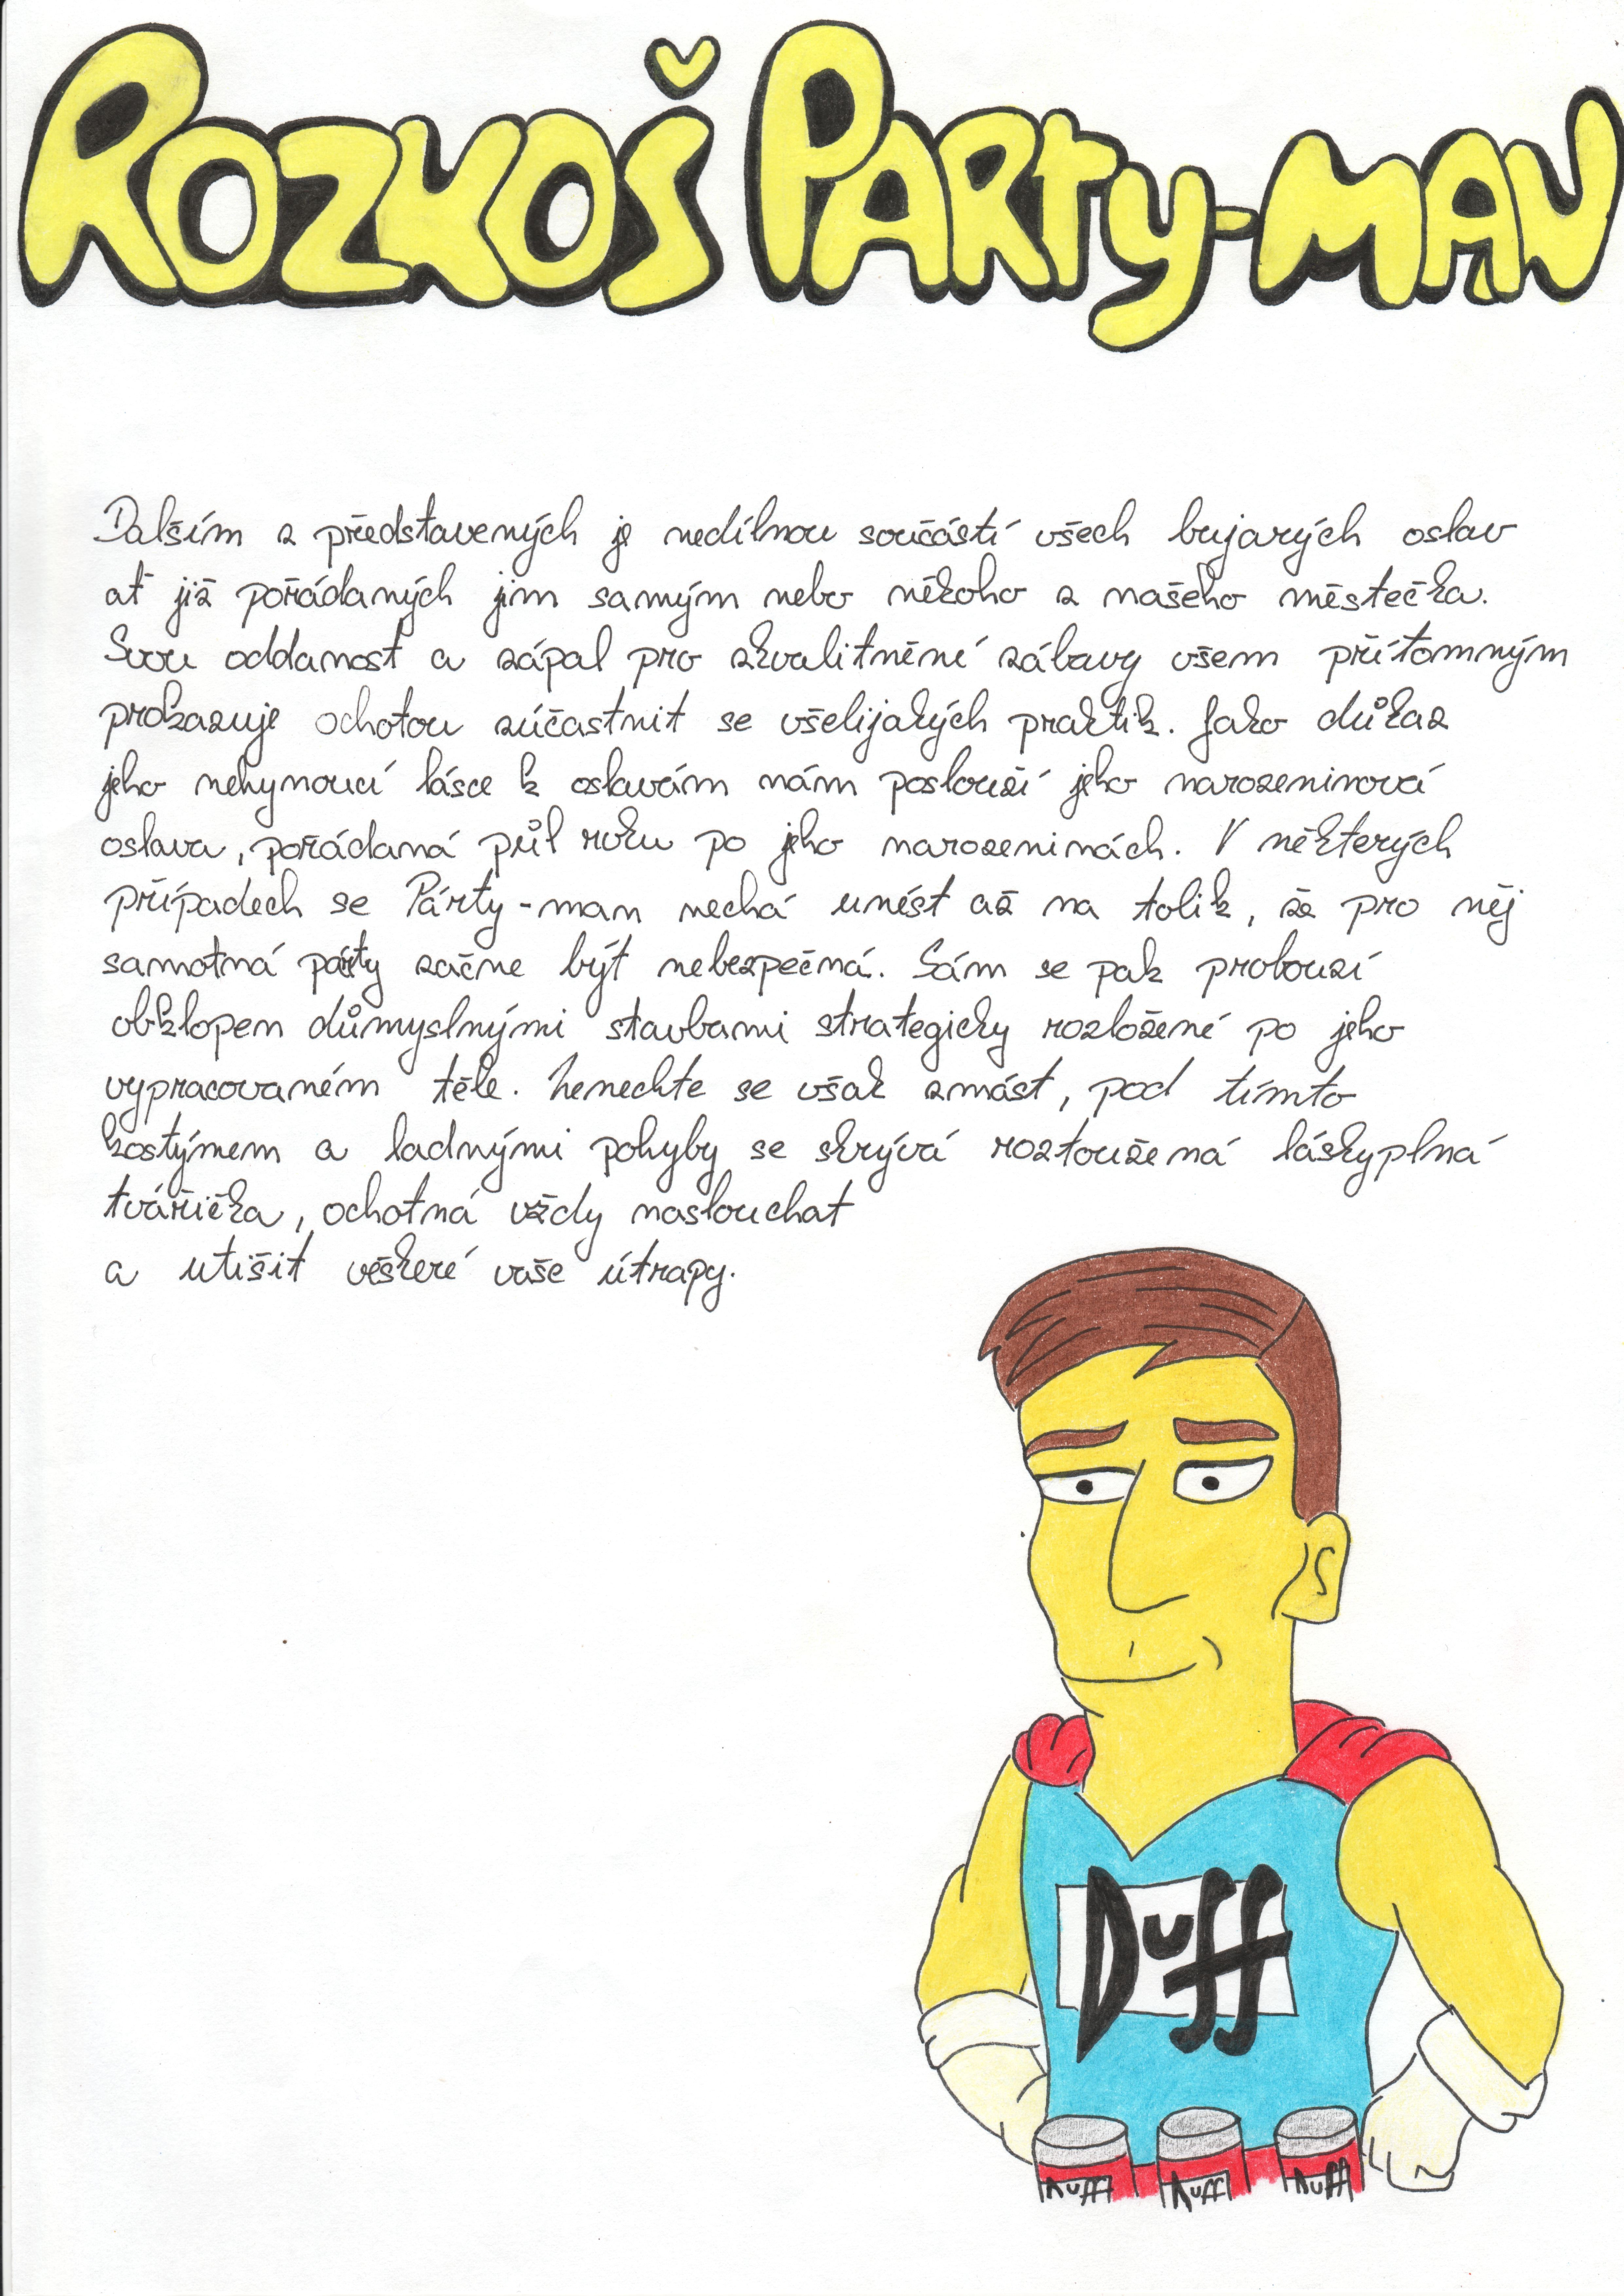 ROZKOŠ PARTY-MAN
Dalším z představených je nedílnou součástí všech bujarých oslav
ať již pořádaných jim samým nebo někoho z našeho městečka.
Svou oddanost a zápal pro zkvalitnění zábavy všem přítomným
prokazuje ochotou zúčastnit se všelijakých praktik. Jako důkaz
jeho nehynoucí lásce k oslavám nám poslouží jeho narozeninová
oslava, pořádaná půl roku po jeho narozeninách. V některých
případech se Párty-man nechá unést až na tolik, že pro něj
samotná párty začne být nebezpečná. Sám se pak probouzí
obklopen důmyslnými stavbami strategicky rozložené po jeho
vypracovaném těle. Nenechte se však zmást, pod tímto
kostýmem a ladnými pohyby se skrývá roztoužená láskyplná
tvářička, ochotná vždy naslouchat
a utišit veškeré vaše útrapy.
Duff
Duff Duff Duff